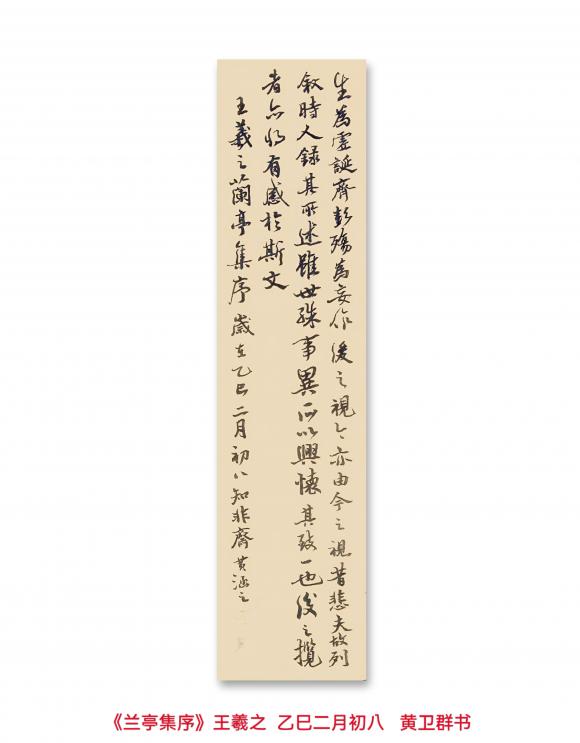 生為虛誕齊彭殤為妄作後之視今亦由今之視昔悲夫故列
敘時人錄其所述雖世殊事異所以興懷其致一也後之攬
者亦將有感於斯文
王羲之蘭亭集序 歲在乙巳二月初八知非齋黃涵之
《兰亭集序》王羲之 乙巳二月初八 黄卫群书